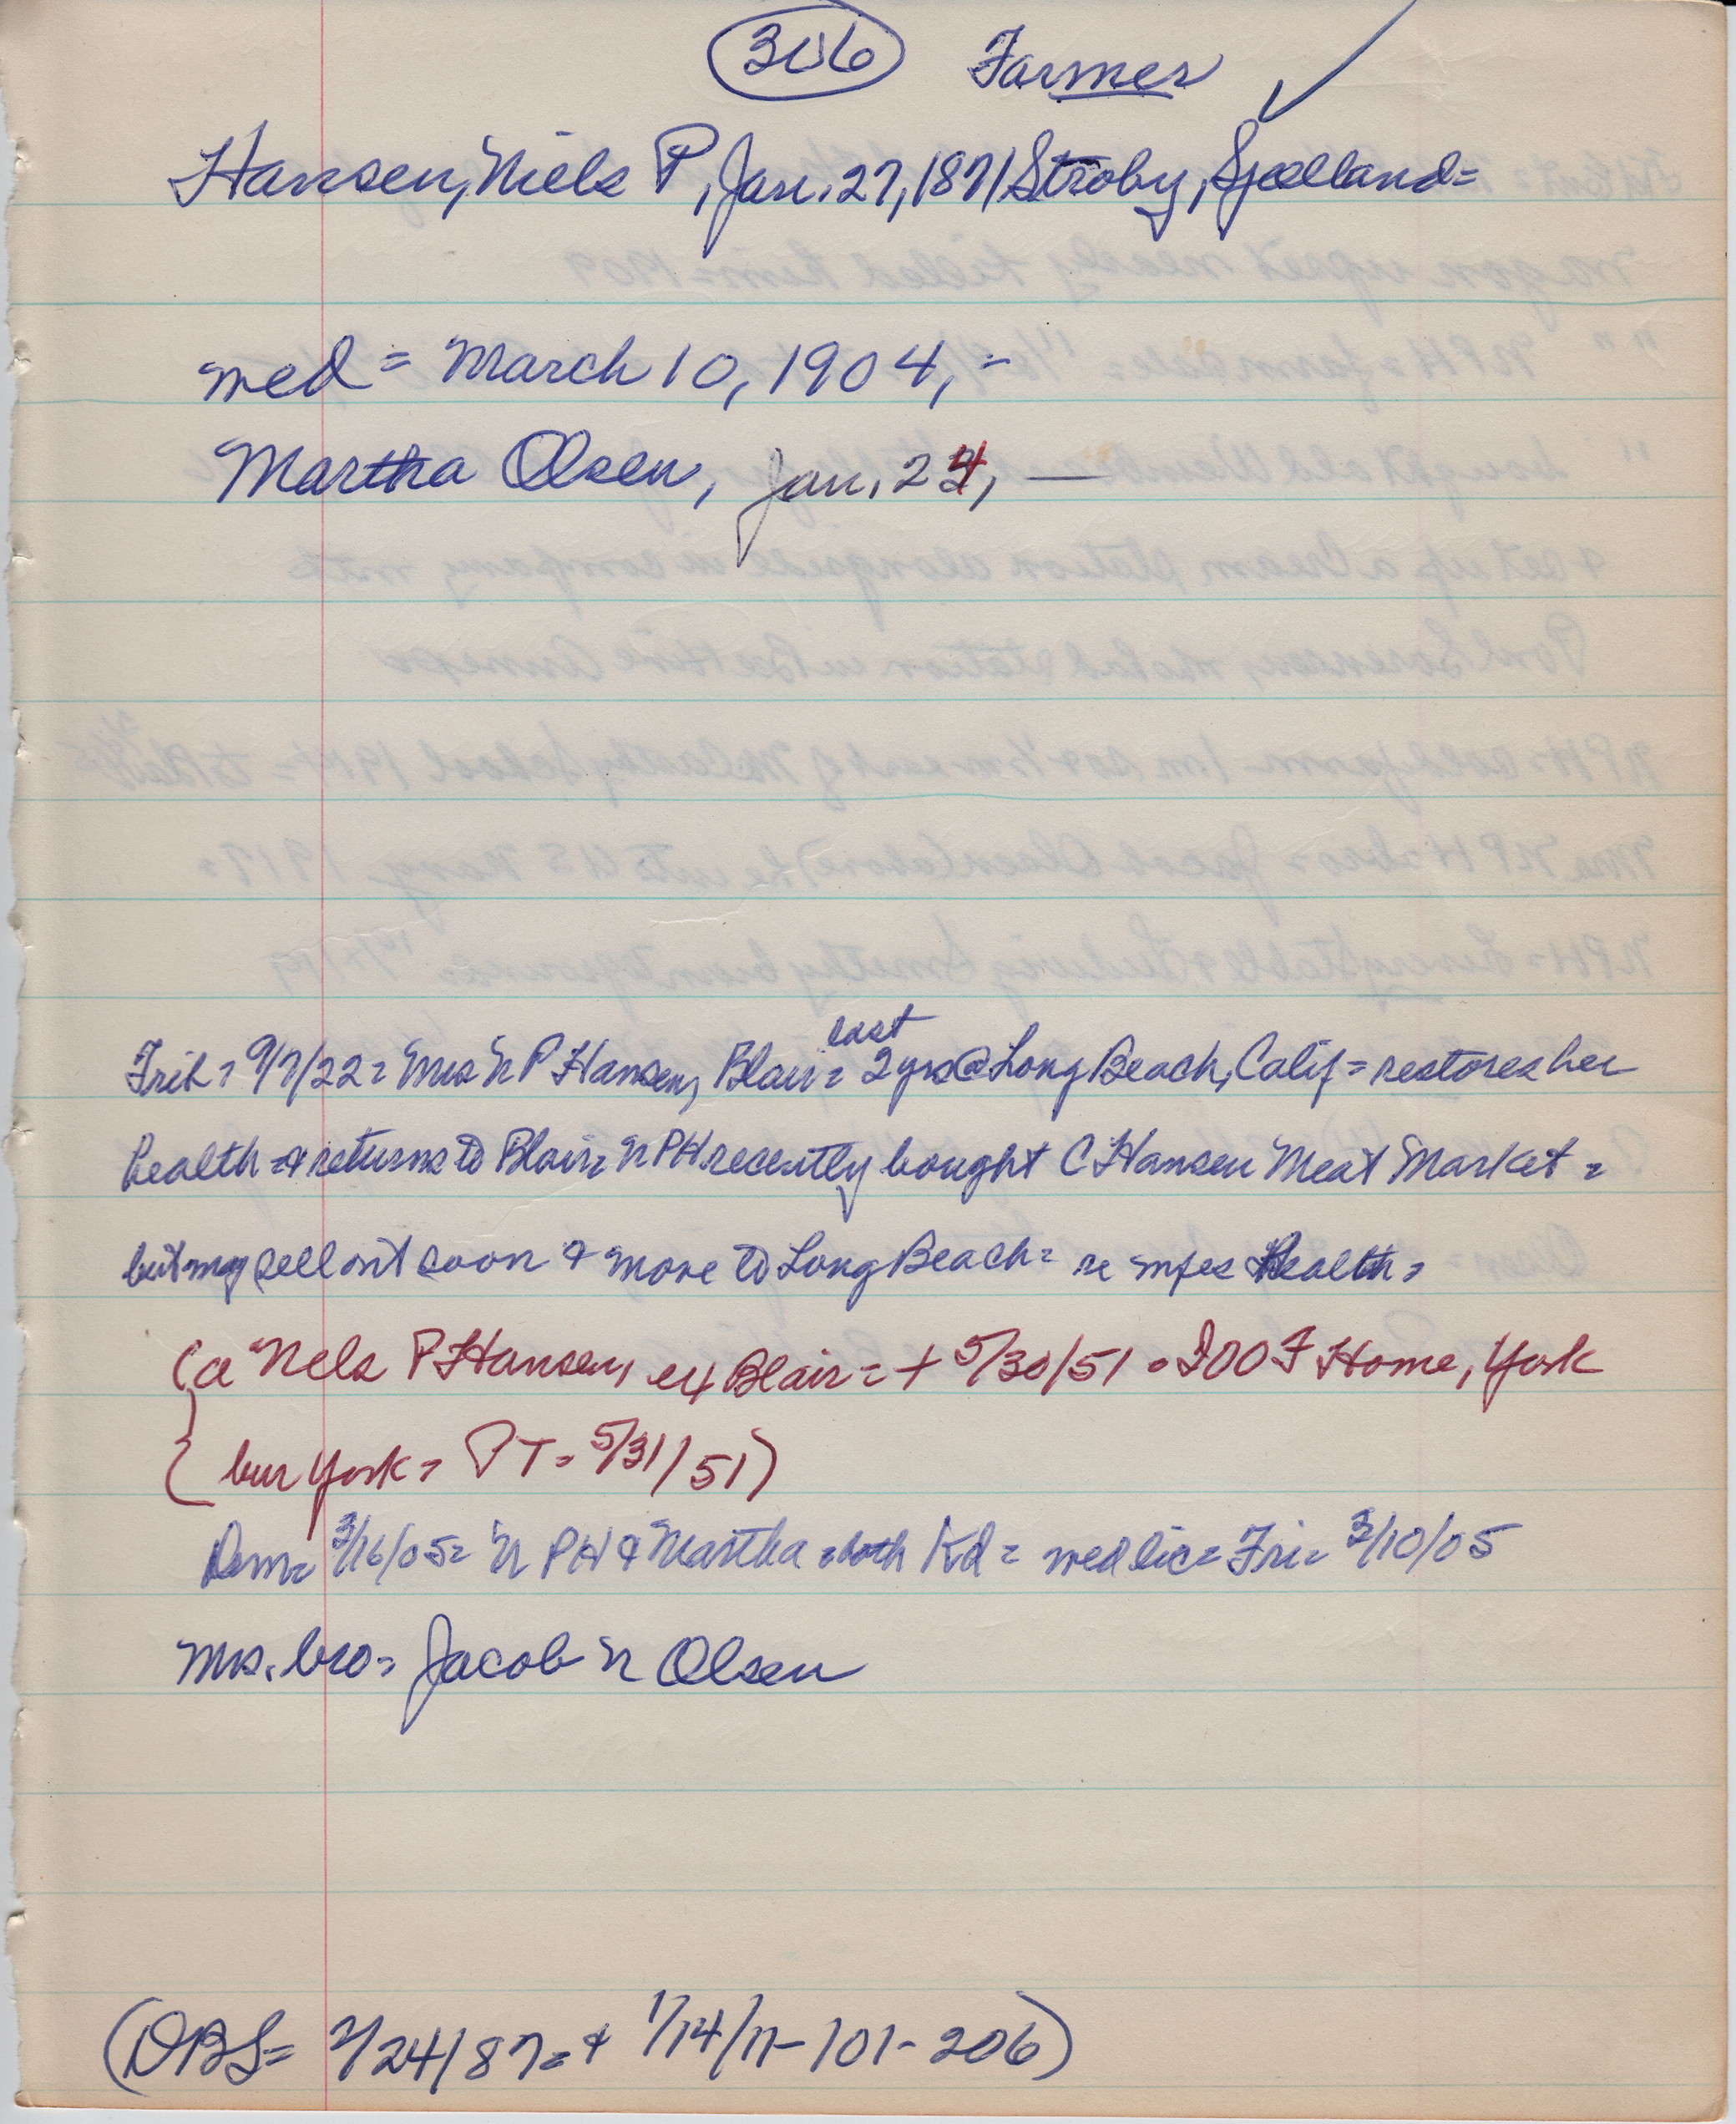 306 Farmer ✓
Hansen, Niels P, Jan. 27, 1871 Stroby, Sjælland=
wed = March 10, 1904, =
Martha Olsen, Jan. 24, —
last
Trib = 9/7/22 = Mrs N P Hansen, Blair = 2 yrs @ Long Beach, Calif = restores her
health = & returns to Blair = N PH recently bought C Hansen Meat Market =
but may sell out soon & move to Long Beach = re Health =
(a Nels P Hansen, ex Blair = + 5/30/51 = IOOF Home, York
bur York = PT = 5/31/51)
Dem = 3/16/05 = N PH & Martha = both Kd = wed lic = Fri = 3/10/05
Mrs. bro = Jacob N Olsen
(DBS = 7/24/87 = & 1/14/11 - 101 - 206)